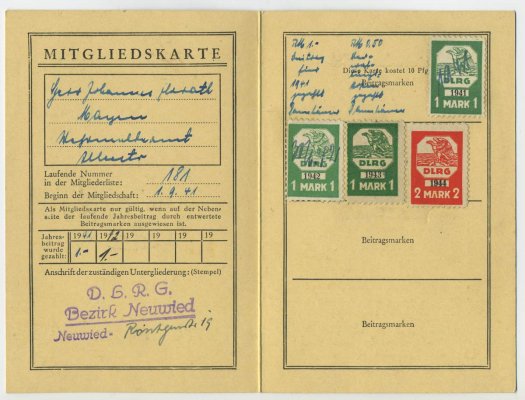 MITGLIEDSKARTE
Herr Johannes
Mayen
Laufende Nummer
in der Mitgliederliste: 181
Beginn der Mitgliedschaft: 1.9.41
Als Mitgliedskarte nur gültig, wenn auf der Neben-
seite der laufende Jahresbeitrag durch entwertete
Beitragsmarken ausgewiesen ist.
Jahres-
beitrag
wurde
gezahlt:
1941 1942 19 19 19
1.- 1.-
Anschrift der zuständigen Untergliederung: (Stempel)
D. L. R. G.
Bezirk Neuwied
Neuwied - Röntgenstr. 19
RM 1.-
Beitrag
für
1941
gezahlt
RM 0.50
gezahlt
Diese Karte kostet 10 Pfg
Beitragsmarken
1941
1 MARK 1
DLRG
1942
1 MARK 1
DLRG
1943
1 MARK 1
DLRG
1944
2 MARK 2
Beitragsmarken
Beitragsmarken